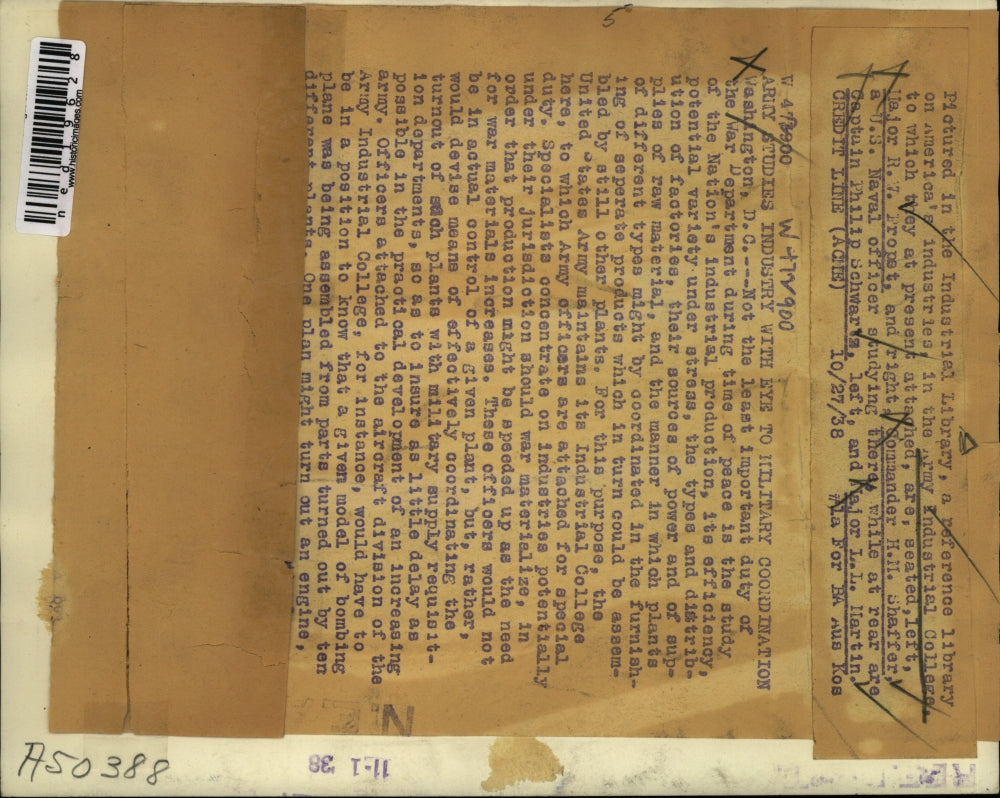 Pictured in the Industrial Library, a reference library
on America's industries in the Army Industrial College,
to which they at present attached, are, seated, left,
Major R.Z. Propst, and right Commander H.M. Shaffer,
a U.S. Naval officer studying there, while at rear are
Captain Philip Schwartz, left, and Major L.L. Martin.
CREDIT LINE (ACME) 10/27/38 #1a For BA Aus Kos
W 473900 W-474900
ARMY STUDIES INDUSTRY WITH EYE TO MILITARY COORDINATION
Washington, D.C.---Not the least important duty of
the War Department during time of peace is the study
of the Nation's industrial production, its efficiency,
potential variety under stress, the types and distrib-
ution of factories, their sources of power and of sup-
plies of raw material, and the manner in which plants
of different types might by coordinated in the furnish-
ing of separate products which in turn could be assem-
bled by still other plants. For this purpose, the
United States Army maintains its Industrial College
here, to which Army officers are attached for special
duty. Specialists concentrate on industries potentially
under their jurisdiction should war materialize, in
order that production might be speeded up as the need
for war materials increases. These officers would not
be in actual control of a given plant, but, rather,
would devise means of effectively coordinating the
turnout of such plants with military supply requisit-
ion departments, so as to insure as little delay as
possible in the practical development of an increasing
army. Officers attached to the aircraft division of the
Army Industrial College, for instance, would have to
be in a position to know that a given model of bombing
plane was being assembled from parts turned out by ten
different plants. One plan might turn out an engine,
5
ned119628
www.historicimages.com
A50388
11-1 38